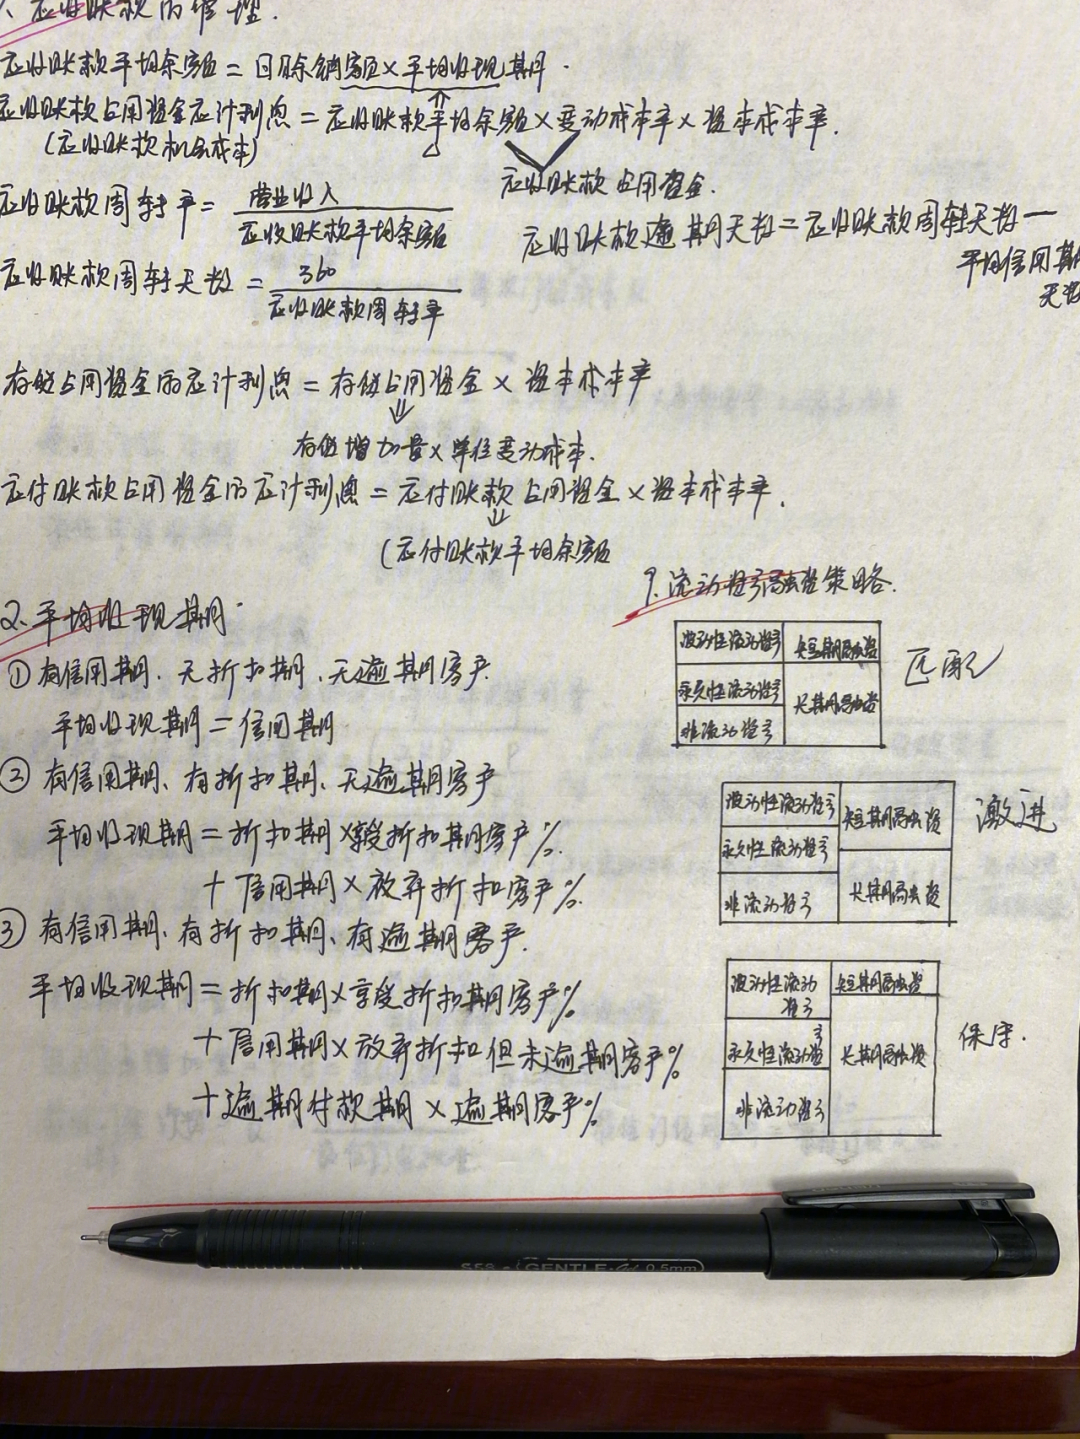 1、应收账款的管理.
应收账款平均余额 = 日赊销额 × 平均收现期.
应收账款占用资金应计利息 = 应收账款平均余额 × 变动成本率 × 资本成本率.
(应收账款机会成本)
应收账款占用资金.
应收账款周转率 = 营业收入 / 应收账款平均余额
应收账款逾期天数 = 应收账款周转天数 — 平均信用期天数
应收账款周转天数 = 360 / 应收账款周转率
存货占用资金的应计利息 = 存货占用资金 × 资本成本率
存货增加量 × 单位变动成本.
应付账款占用资金的应计利息 = 应付账款占用资金 × 资本成本率.
(应付账款平均余额
2、平均收现期.
① 有信用期、无折扣期、无逾期客户.
平均收现期 = 信用期
② 有信用期、有折扣期、无逾期客户
平均收现期 = 折扣期 × 享受折扣期客户%.
+ 信用期 × 放弃折扣客户%.
③ 有信用期、有折扣期、有逾期客户.
平均收现期 = 折扣期 × 享受折扣期客户%
+ 信用期 × 放弃折扣但未逾期客户%
+ 逾期付款期 × 逾期客户%
9.流动资产融资策略.
波动性流动资产 短期融资
永久性流动资产 长期融资
非流动资产
匹配
波动性流动资产 短期融资
永久性流动资产
非流动资产 长期融资
激进
波动性流动资产 短期融资
永久性流动资产 长期融资
非流动资产
保守.
GENTLE-Gel 0.5mm